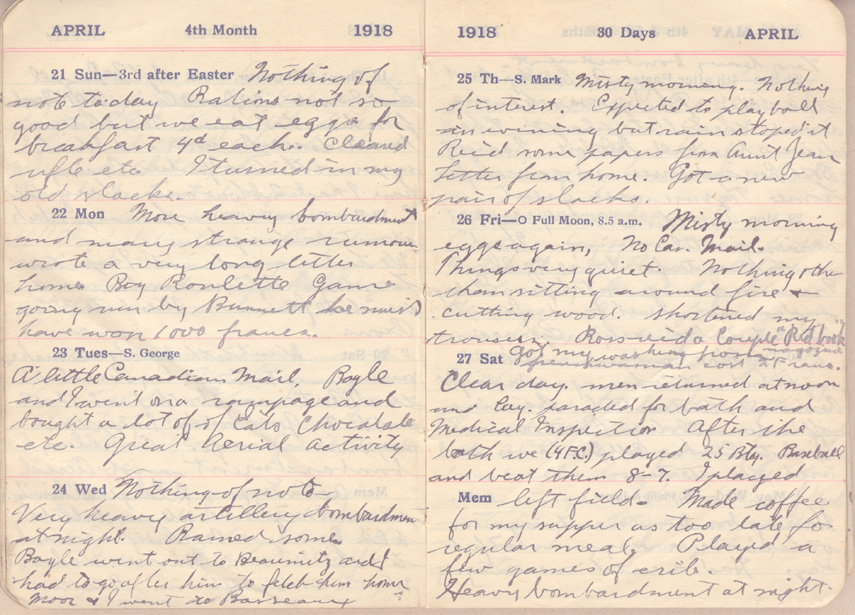 APRIL 4th Month 1918
21 Sun—3rd after Easter Nothing of
note today Rations not so
good but we eat eggs for
breakfast 4d each. Cleaned
rifle etc I turned in my
old slacks.
22 Mon More heavy bombardment
and many strange rumours
wrote a very long letter
home Big Roulette Game
going run by Burnett he must
have won 1000 francs.
23 Tues—S. George
A little Canadian Mail. Bogle
and I went on a rampage and
bought a lot of Eats Chocolate
etc. Great Aerial Activity
24 Wed Nothing of note
Very heavy artillery bombardment
at night. Rained some
Bogle went out to and
had to go after him to fetch him home
Moor & I went to
1918 30 Days APRIL
25 Th—S. Mark Misty morning. Nothing
of interest. Expected to play ball
in evining but rain stoped it
Recd some papers from Aunt Jean
letter from home. Got a new
pair of slacks.
26 Fri—O Full Moon, 8.5 a.m. Misty morning
eggs again, No Can. Mail.
Things very quiet. Nothing other
than sitting around fire +
cutting wood. Shortened my
trousers. Ross recd a Couple "Red book"
magazines
27 Sat Got my washing from
frenchwoman cost 2 francs.
Clear day. men returned at noon
and paraded for bath and
Medical Inspection After the
bath we (4FC) played 25 Bty. Baseball
and beat them 8-7. I played
Mem left field- Made coffee
for my supper as too late for
regular meal, Played a
few games of crib.
Heavy bombardment at night.